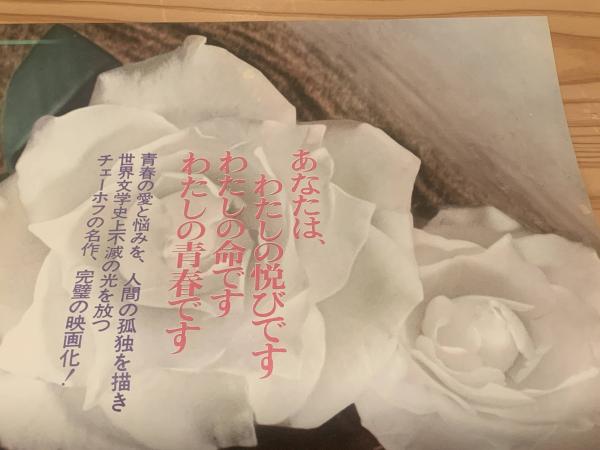 あなたは、
わたしの悦びです
わたしの命です
わたしの青春です
青春の愛と悩みを、人間の孤独を描き
世界文学史上不滅の光を放つ
チェーホフの名作、完璧の映画化！